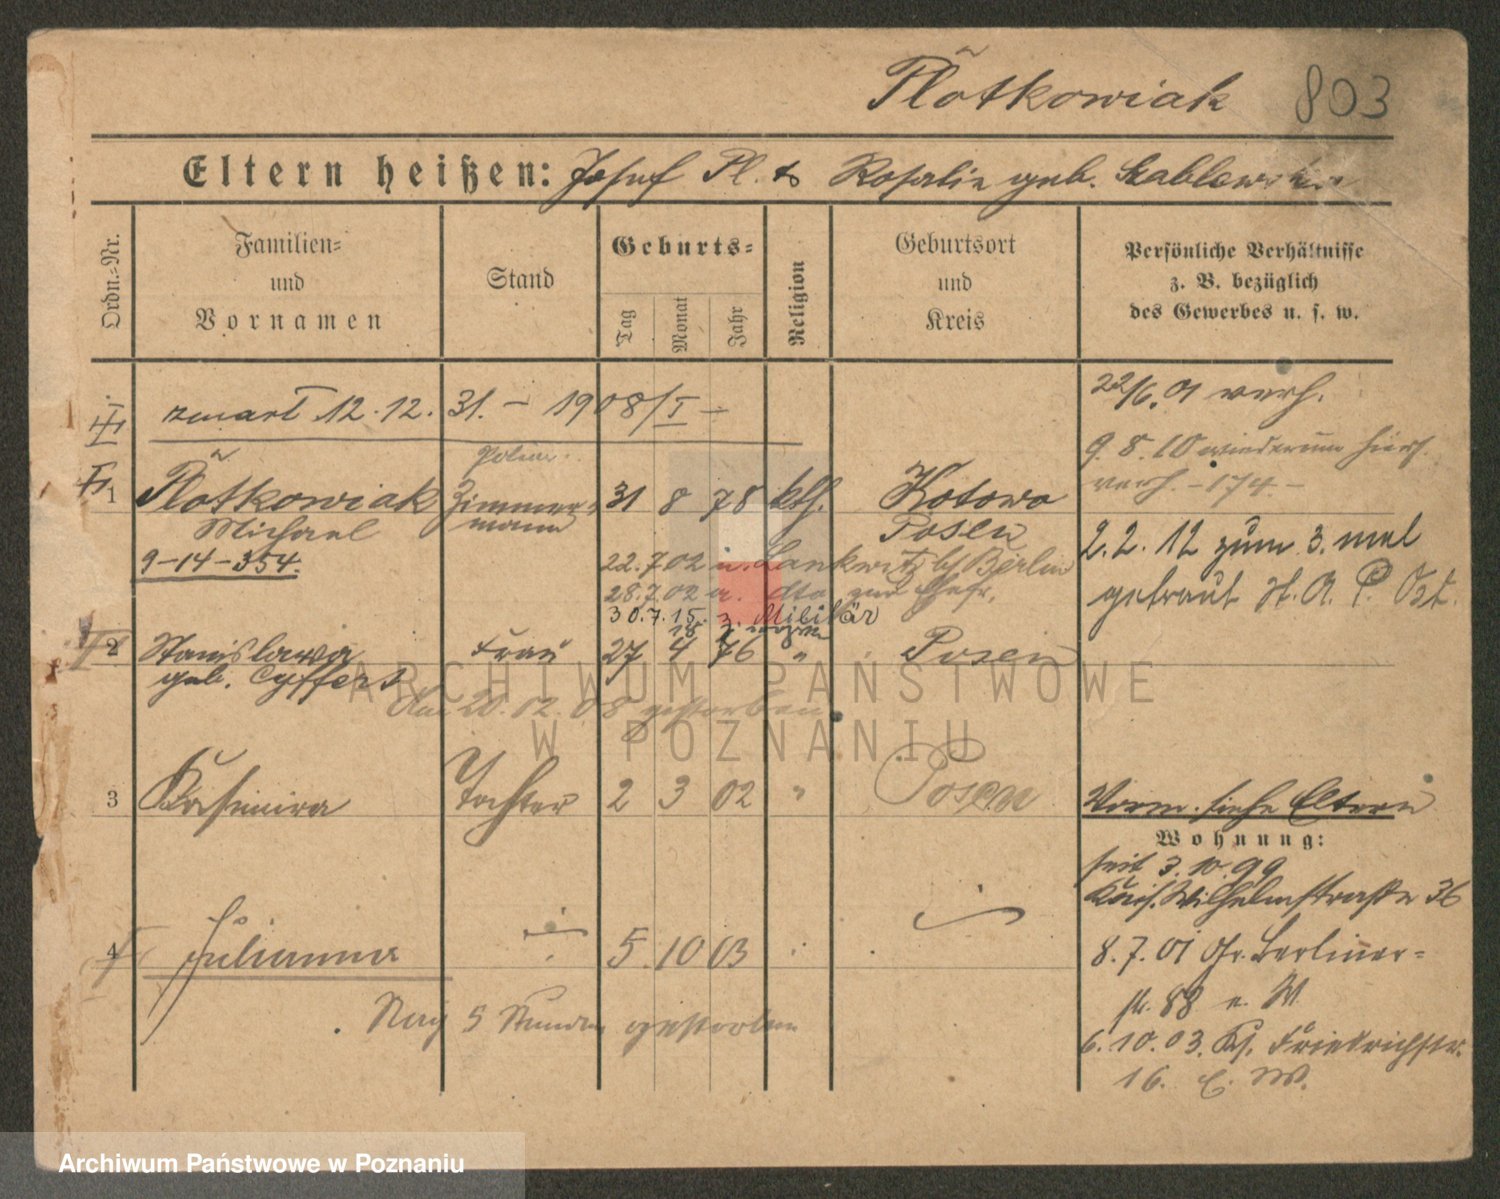 Plotkowiak 803
Eltern heißen: Josef Pl. & Rosalie geb.
Ordn.=Nr.
Familien=
und
Vornamen
Stand
Geburts=
Tag
Monat
Jahr
Religion
Geburtsort
und
Kreis
Persönliche Verhältnisse
z. B. bezüglich
des Gewerbes u. s. w.
12.12. 31. – 1908/I –
22/6.01 verh.
9.8.10 wiederum hiers.
verh. – 174. –
1 Plotkowiak Zimmer= 31 8 78 kth. Kotowo
Michael mann Posen
9–14–354.
2.2.12 zum 3. mal
getraut St. A. P. Ost.
22.7.02 n. Lankwitz b/ Berlin
28.7.02 a. dto zur Ehefr.
30.7.15. z. Militär
2 Stanislawa Frau 27 4 76 " Posen
geb. Cyffert
Am 20.12.08 gestorben
3 Kasimira Tochter 2 3 02 " Posen
Vorm. siehe Eltern
Wohnung:
seit 3.10.99
Kais. Wilhelmstraße 36
4 Julianna 5. 10 03
Nach 5 Stunden gestorben
8.7.01 Gr. Berliner=
str. 88 e. W.
6.10.03. Ks. Friedrichstr.
16. E. W.
ARCHIWUM PAŃSTWOWE
W POZNANIU
Archiwum Państwowe w Poznaniu